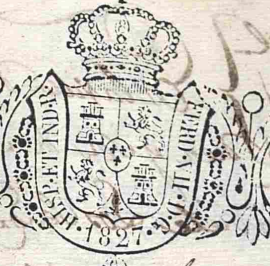 FERD·VII·D·G·
·HISP·ET IND·R·
·1827·